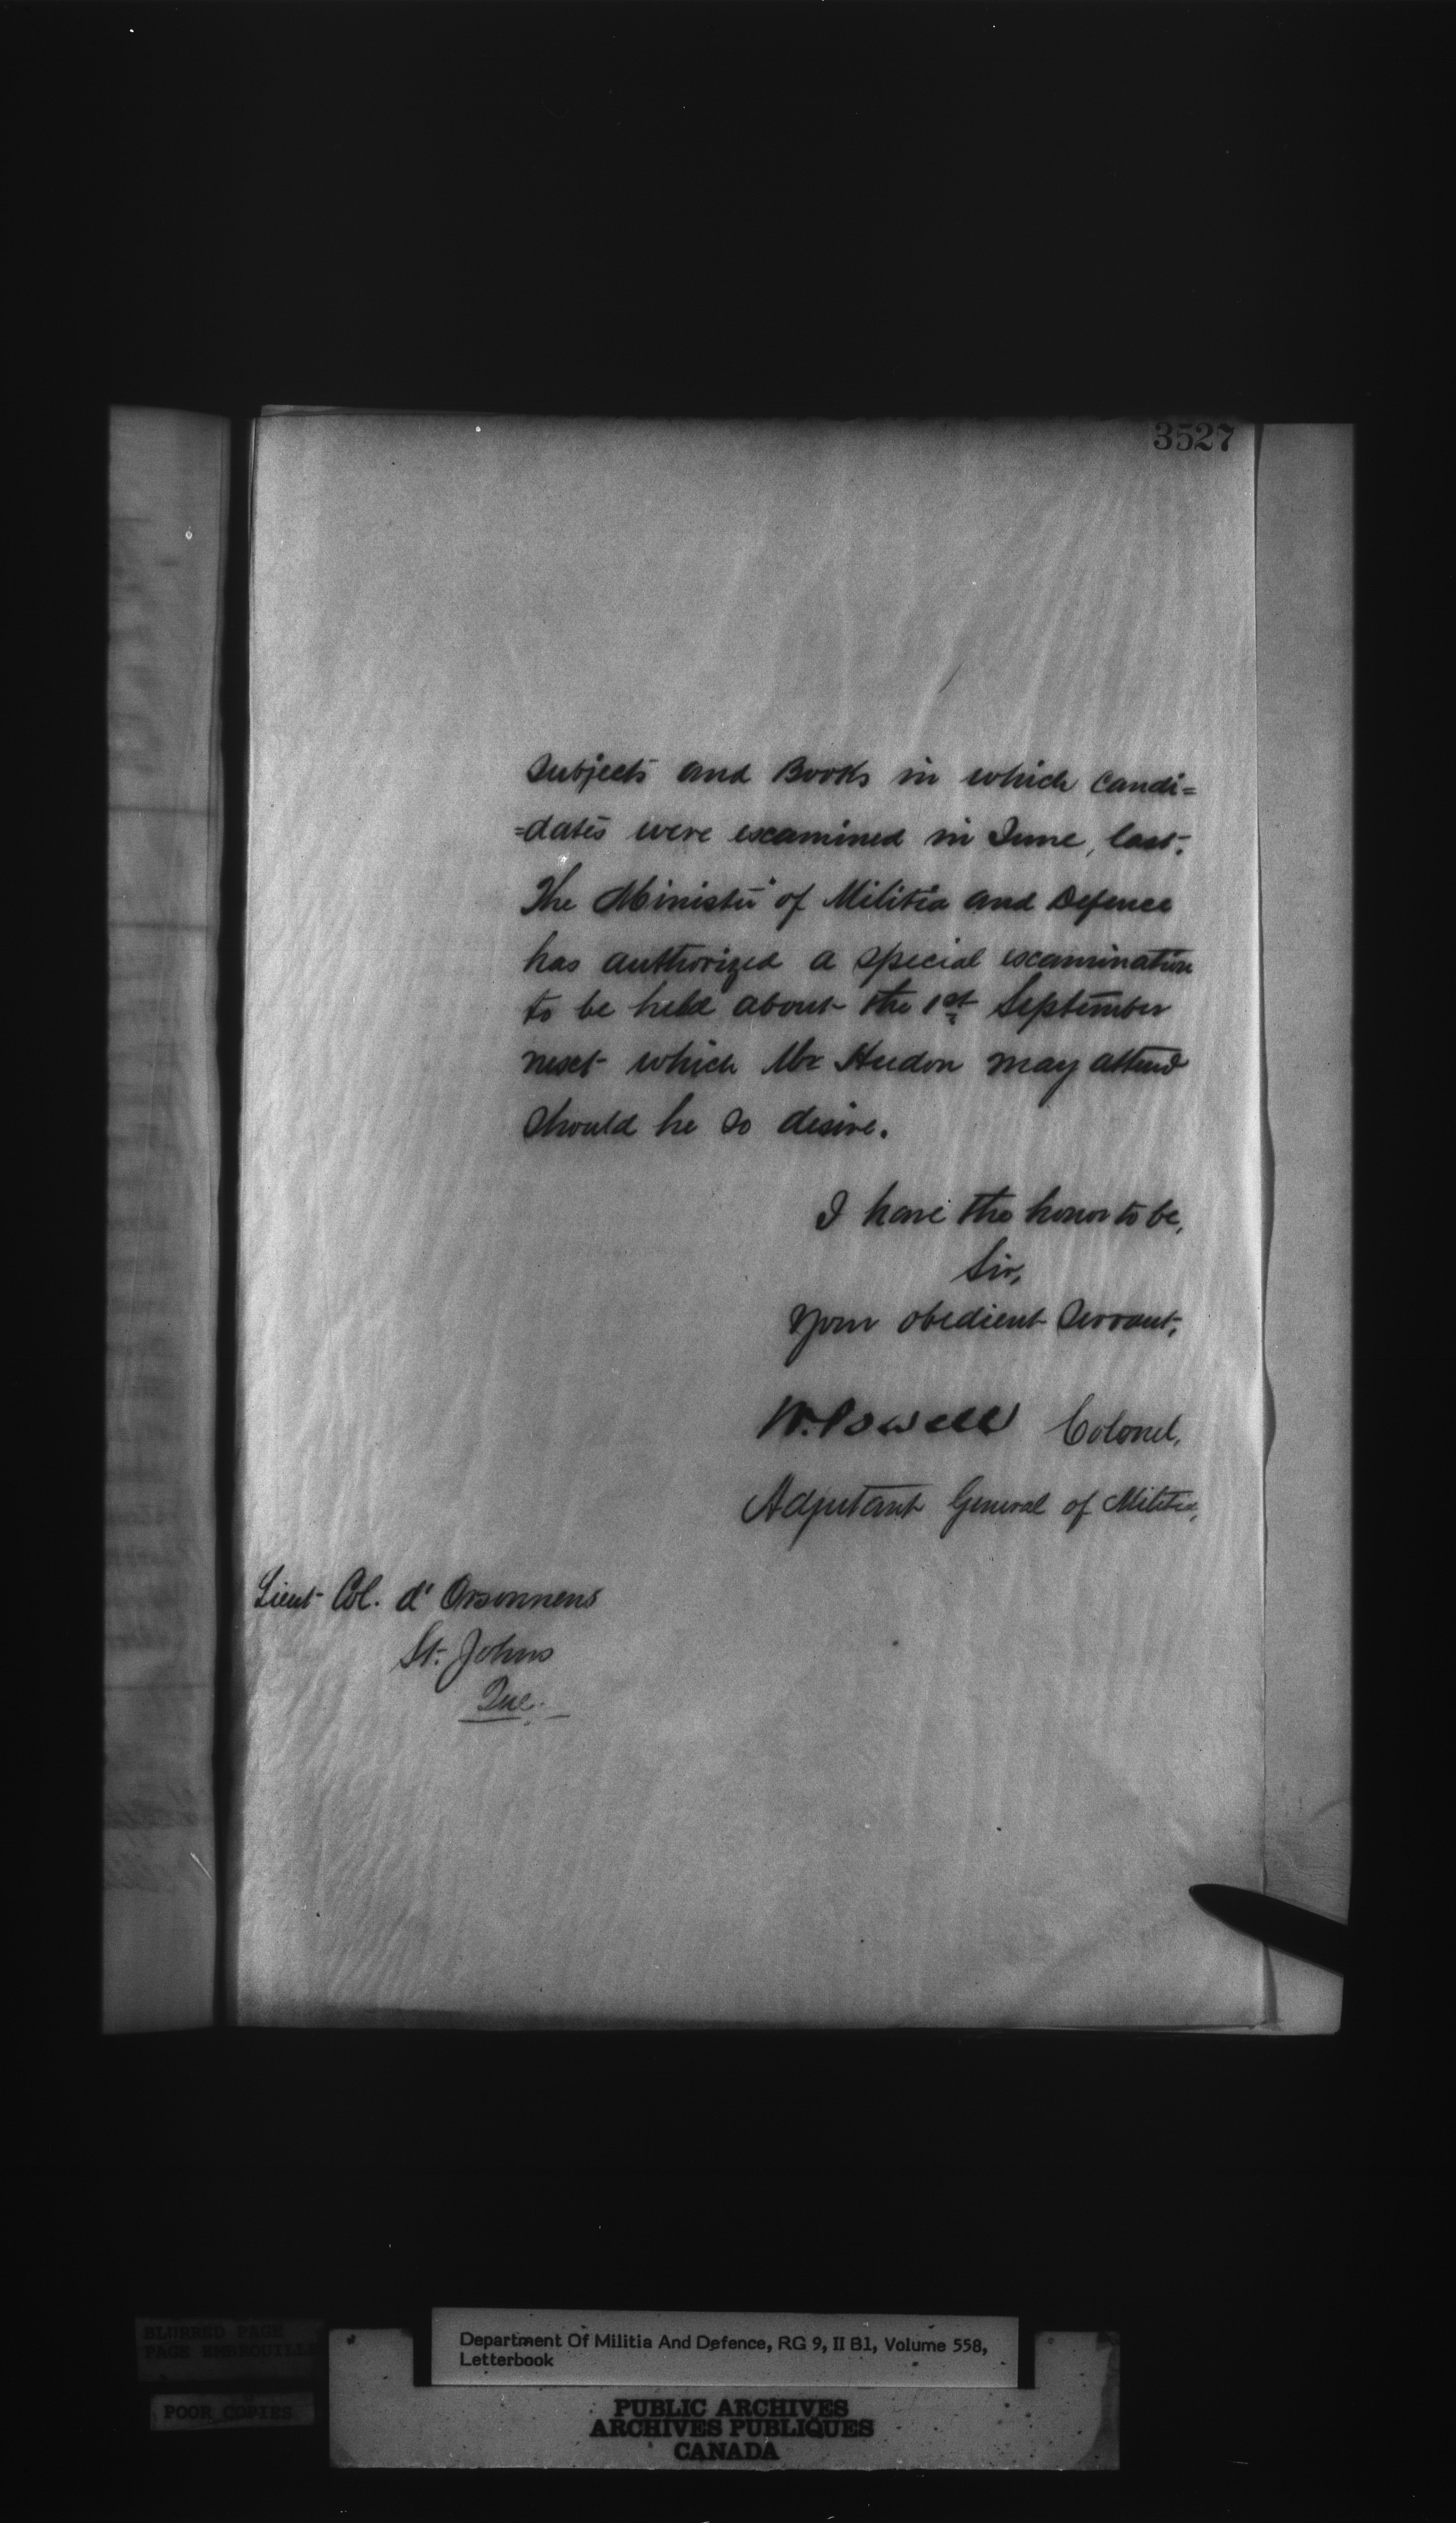 3527
subjects and Books in which candi=
=dates were examined in June, last.
The Minister of Militia and Defence
has authorized a special examination
to be held about the 1st September
next which Mr Hudon may attend
should he so desire.
I have the honor to be,
Sir,
Your obedient Servant,
W. Powell Colonel,
Adjutant General of Militia,
Lieut Col. d'Orsonnens
St. Johns
Que.
BLURRED PAGE
PAGE EMBROUILLE
POOR COPIES
Department Of Militia And Defence, RG 9, II B1, Volume 558,
Letterbook
PUBLIC ARCHIVES
ARCHIVES PUBLIQUES
CANADA